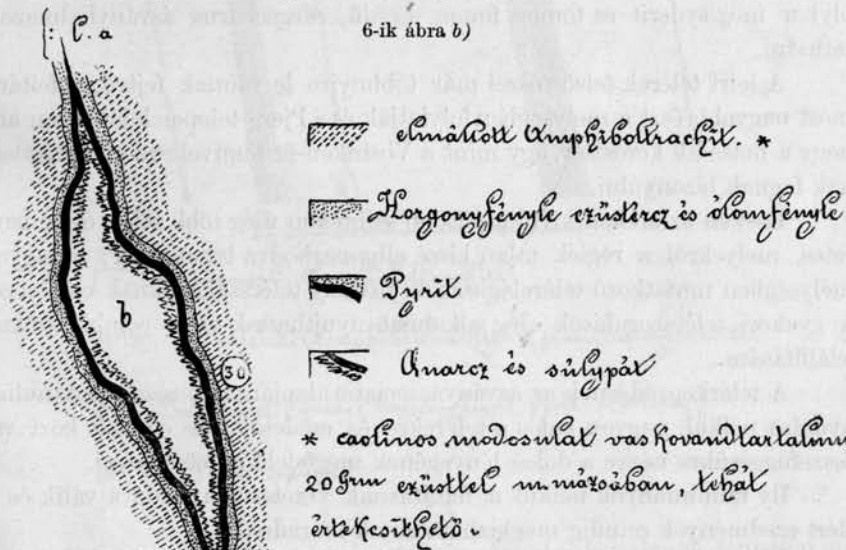 6-ik ábra b)
l. a
elmállott Amphiboltrachit. *
Horgonyfényle ezüstércz és ólomfényle
b
Pyrit
30
Quarcz és súlypát
* caolinos módosulat vaskovandtartalmú
20 Grm ezüsttel m. mázsában, tehát
értékesíthető.